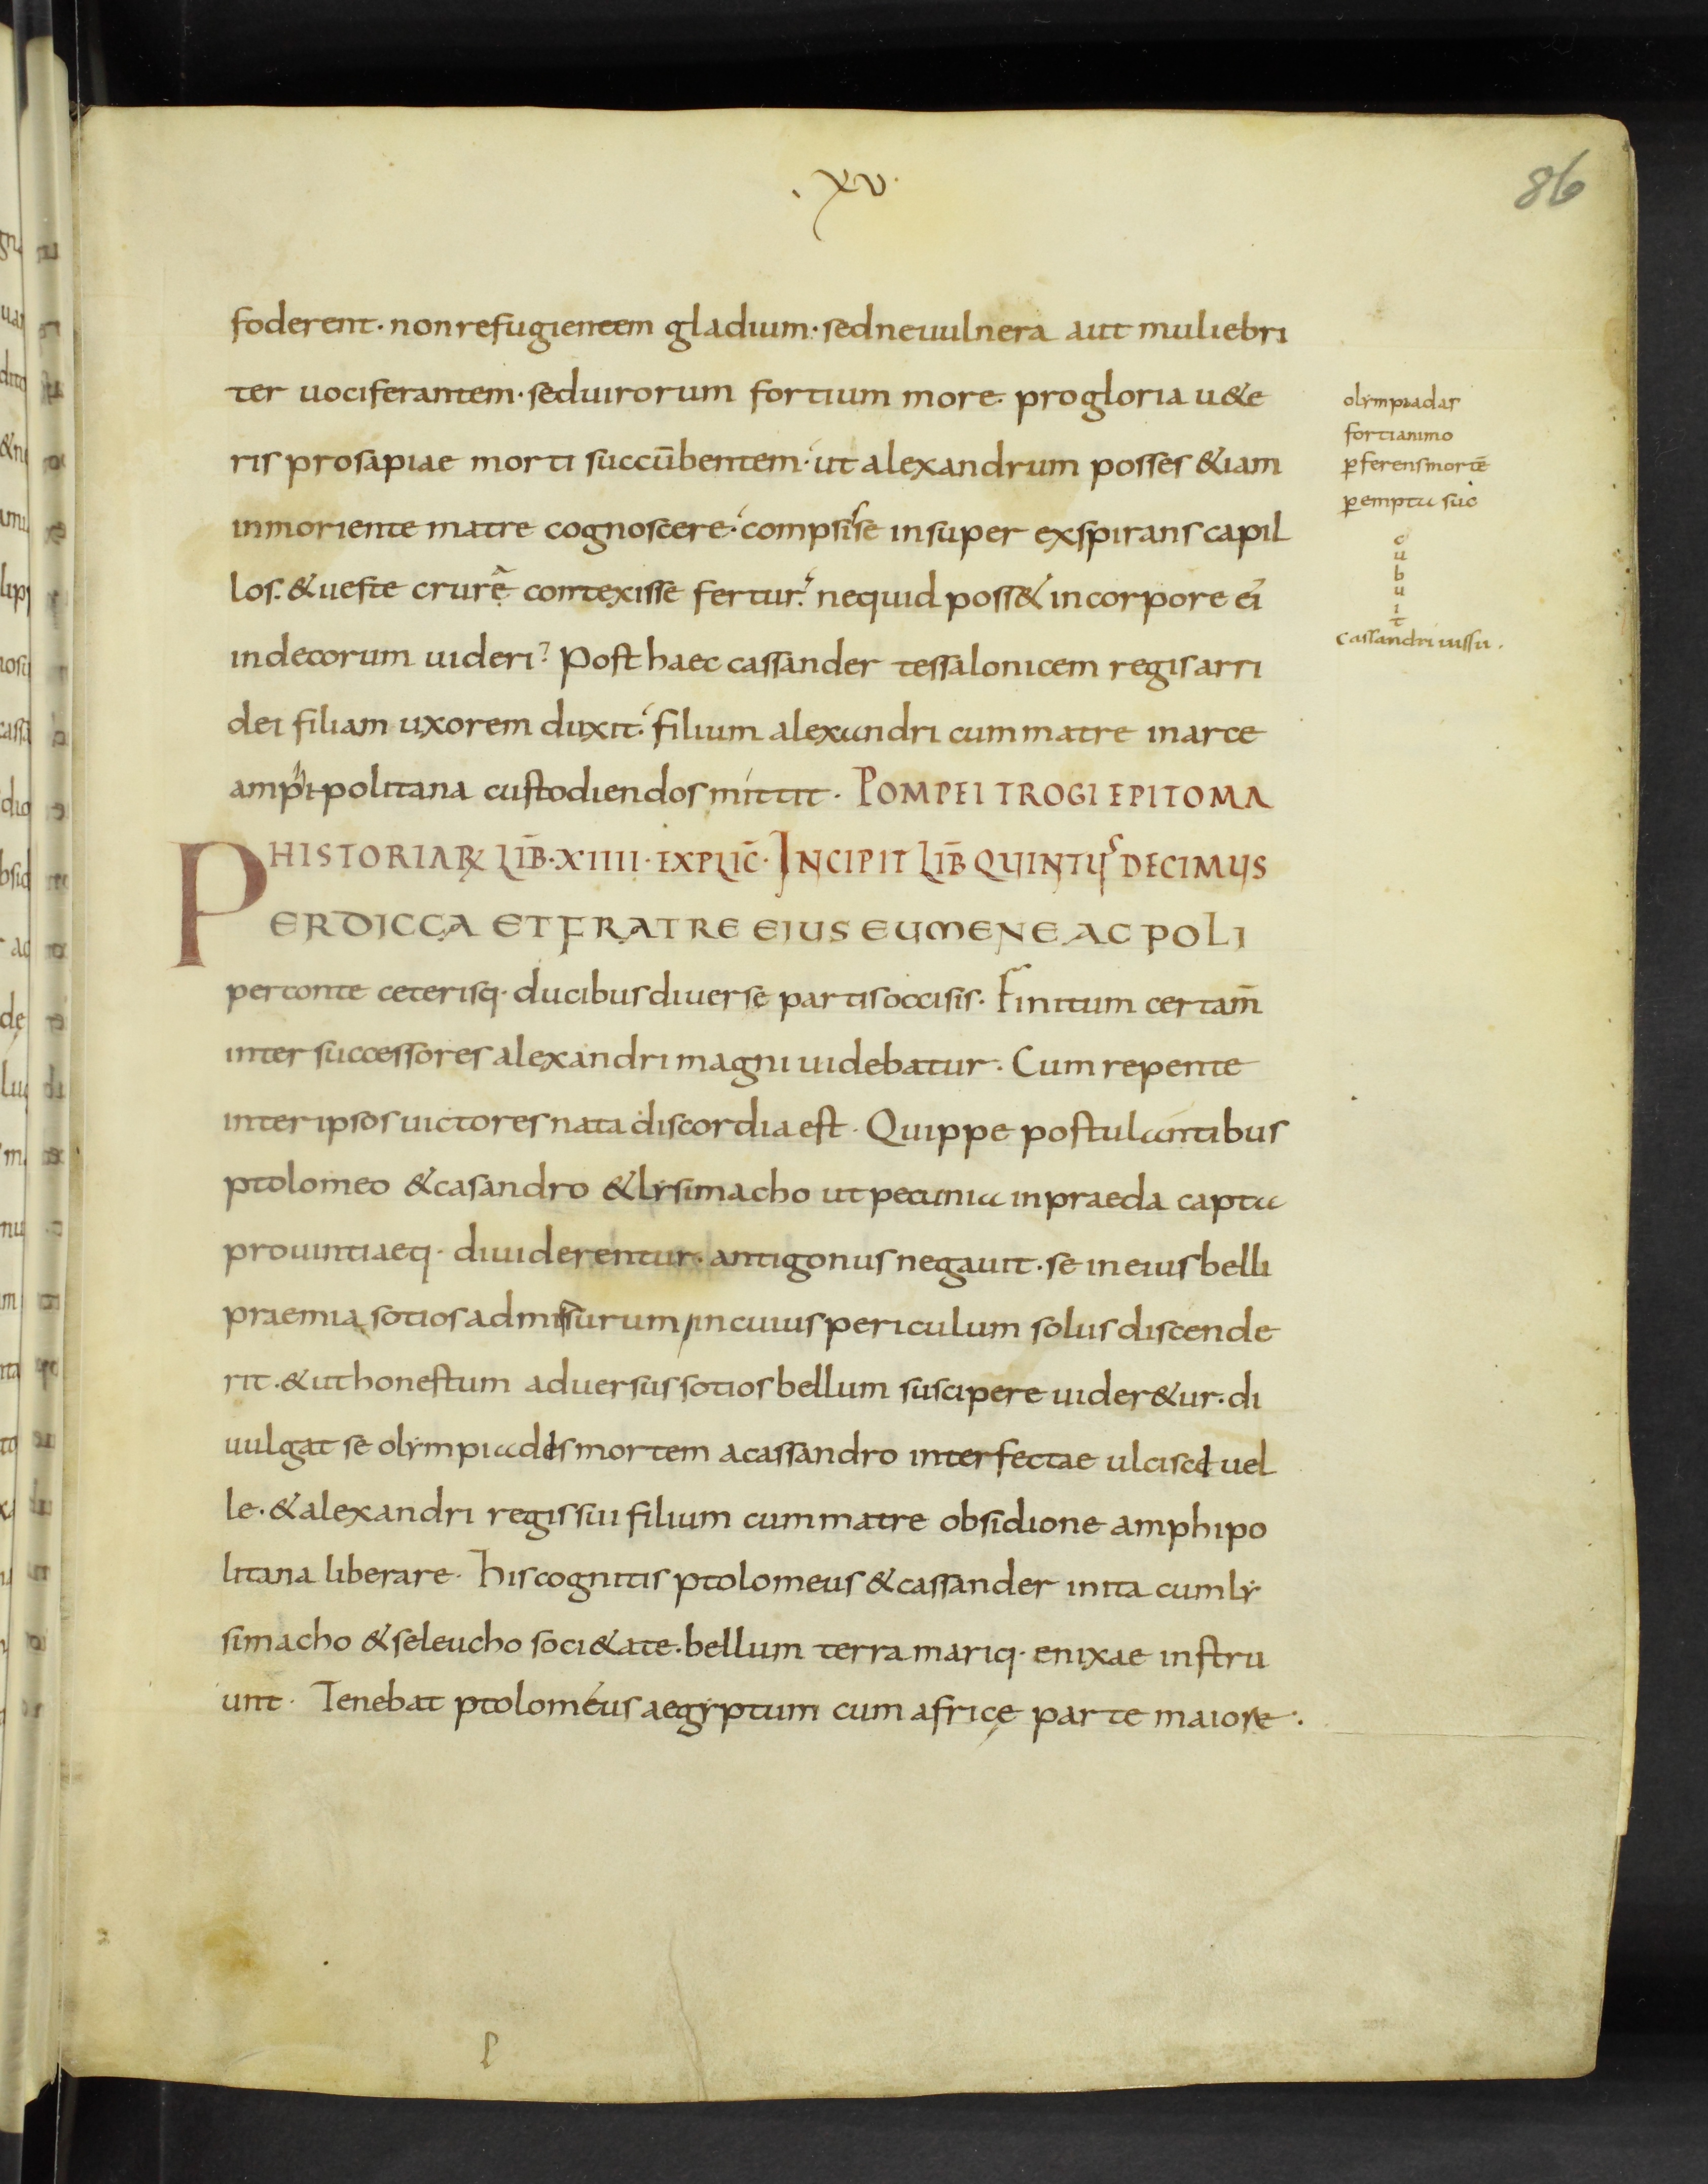 ·XV·
86
foderent· non refugientem gladium· sed ne uulnera aut muliebri
ter uociferantem· sed uirorum fortium more· pro gloria u&e
ris prosapiae morti succūbentem· ut alexandrum posses &iam
in moriente matre cognoscere· compsisse insuper exspirans capil
los. & ueste crurē contexisse fertur· nequid poss& in corpore ei
indecorum uideri? Post haec cassander tessalonicem regis arri
dei filiam uxorem duxit· filium alexandri cum matre in arce
amphipolitana custodiendos mittit· POMPEI TROGI EPITOMA
HISTORIARꝜ LIB̄·XIIII·EXPLIC̄· INCIPIT LIB̄ QUINTUS DECIMUS
PERDICCA ET FRATRE EIUS EUMENE AC POLI
perconte ceterisq· ducibus diuerse partis occisis· Finitum certam̄
inter successores alexandri magni uidebatur· Cum repente
inter ipsos uictores nata discordia est· Quippe postulantibus
ptolomeo & casandro & lysimacho ut pecunia in praeda capta
prouintiaeq· diuiderentur· antigonus negauit· se in eius belli
praemia sotios admissurum, in cuius periculum solus discende
rit· & ut honestum aduersus sotios bellum suscipere uider&ur· di
uulgat se olympiadis mortem a cassandro interfectae ulcisci uel
le· & alexandri regis sui filium cum matre obsidione amphipo
litana liberare· his cognitis ptolomeus & cassander inita cum ly
simacho & seleucho soci&ate· bellum terra mariq· enixae instru
unt· Tenebat ptolomeus aegyptum cum africę parte maiore·
olympiadas
forti animo
ꝑferens mortē
ꝑempta suc
c
u
b
u
i
t
cassandri iussu·